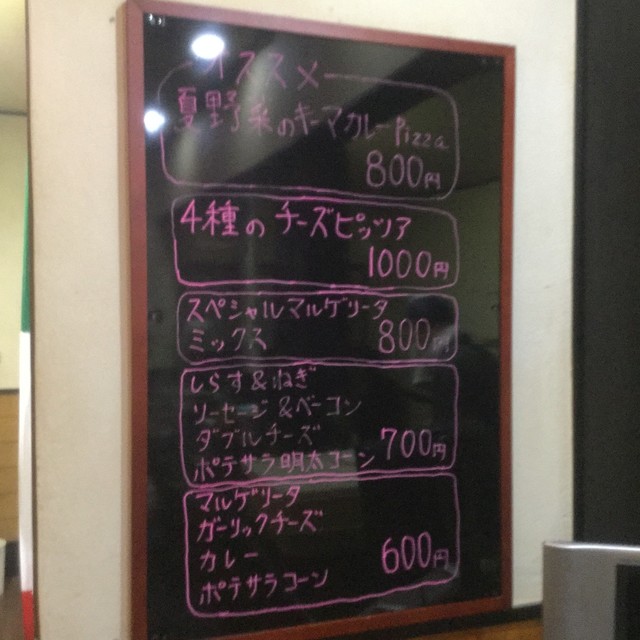 オススメ
夏野菜のキーマカレーPizza
800円
4種のチーズピッツア
1000円
スペシャルマルゲリータ
ミックス 800円
しらす&ねぎ
ソーセージ&ベーコン
ダブルチーズ 700円
ポテサラ明太コーン
マルゲリータ
ガーリックチーズ
カレー 600円
ポテサラコーン